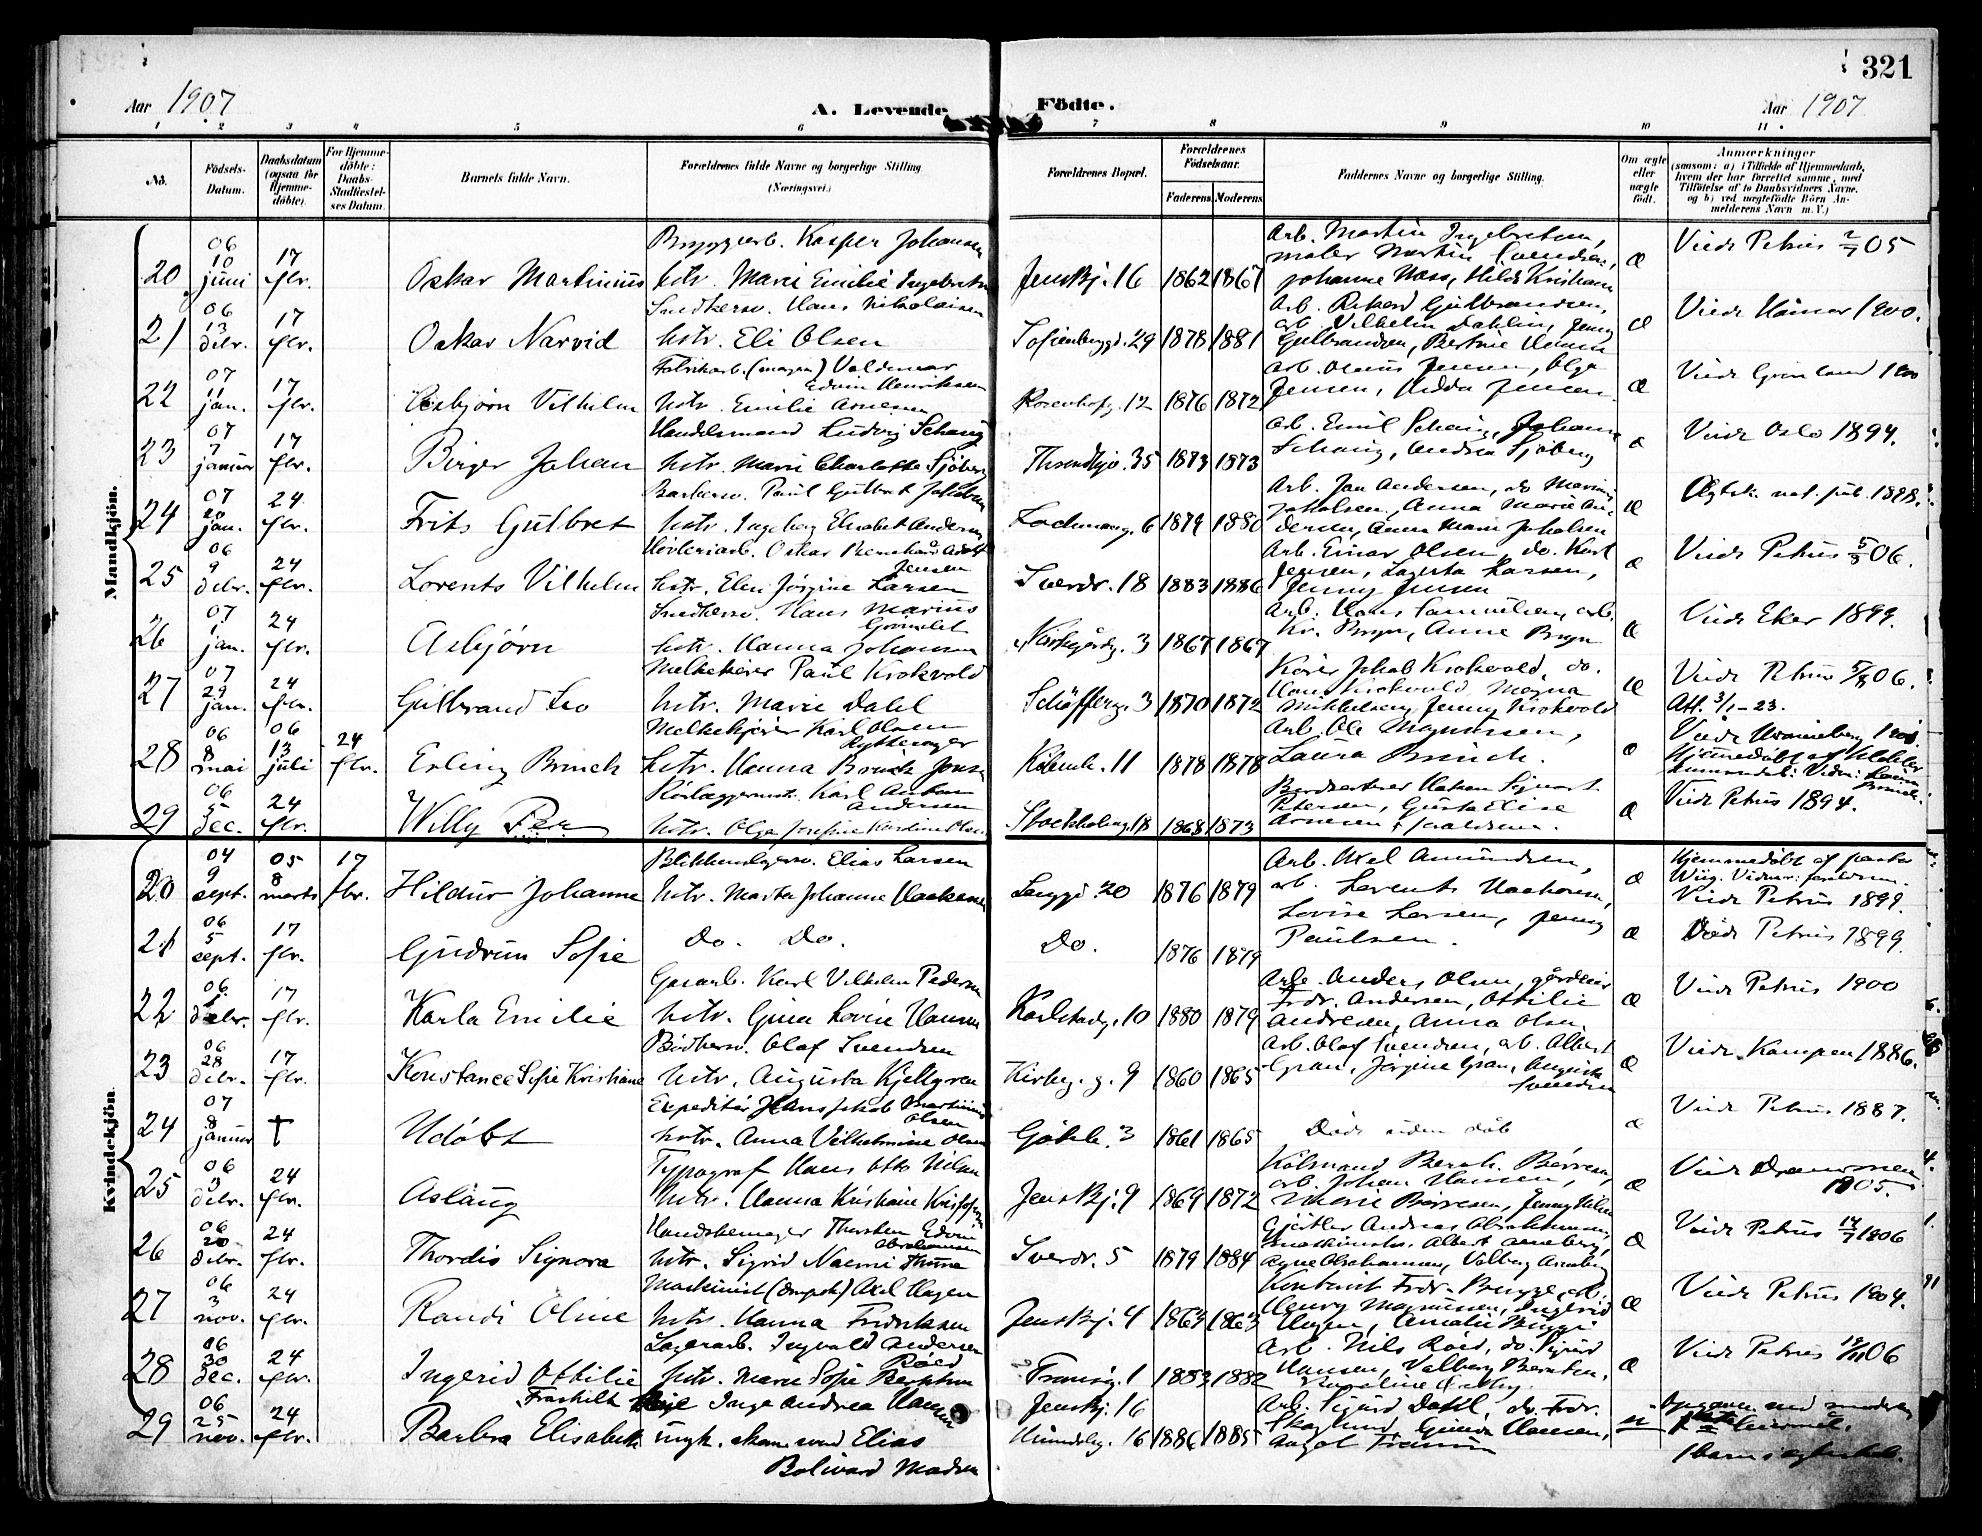 321
Aar 1907
A. Levende Födte.
Aar 1907
1 2 3 4 5 6 7 8 9 10 11
No.
Födsels-Datum.
Daabsdatum (ogsaa för Hjemme-döbte).
For Hjemme-döbte: Daabs-Stadfæstel-ses Datum.
Barnets fulde Navn.
Forældrenes fulde Navne og borgerlige Stilling. (Næringsvei.)
Forældrenes Bopæl.
Forældrenes Födselsaar.
Faderens Moderens
Faddernes Navne og borgerlige Stilling.
Om ægte eller uægte födt.
Anmærkninger
(saasom: a) i Tilfælde af Hjemmedaab, hvem der har forrettet samme, med Tilföielse af to Daabsvidners Navne, og b) ved uægtefödte Börn An-melderens Navn m. V.)
Mandkjön.
20 06 10 juni 17 fbr. Oskar Martinius Bryggiarb. Kasper Johansen hstr. Marie Emilie Ingebretsen Jens Bj. 16 1862 1867 Arb. Martin Ingebretsen, maler Martin Svendsen, Johanne Næss, Hilda Kristians Æ Viede Petrus 2/7 05
21 06 13 debr. 17 fbr. Oskar Narvid Snedkersv. Hans Nikolaisen hstr. Eli Olsen Sofienbergg. 29 1878 1881 Arb. Rikard Gulbrandsen, arb. Vilhelm Dahlin, Jenny Gulbrandsen, Æ Viede Hamar 1900.
22 07 11 jan. 17 fbr. Asbjörn Vilhelm Fabrikarb. Valdemar Edvin Henriksen hstr. Emilie Arnesen Rosenhofg. 12 1876 1872 Arb. Jensen, Olga Jensen, Hedda Jensen. Æ Viede Grönland 1900
23 07 7 januar 17 fbr. Birger Johan Handelsmand Ludvig Schanig hstr. Marie Charlotte Sjöberg Throndhjv. 35 1873 1873 Arb. Emil Schanig, Johanne Schanig, Andrea Sjöberg Æ Viede Oslo 1894.
24 07 20 jan. 24 fbr. Frits Gulbret Barbersv. Paul Gulbret Jakobsen hstr. Ingeborg Elisabet Andersen Lochmanng. 6 1879 1880 Arb. Jan Andersen, do Marius Jakobsen, Anna Marie Andersen, Anna Marie Jakobsen Æ 1898.
25 06 9 debr. 24 fbr. Lorents Vilhelm Hövleriarb. Oskar Bernhard Adolf Jensen hstr. Elen Jörgine Larsen Sverdr. 18 1883 1886 Arb. Einar Olsen, do. Karl Jensen, Lagerta Larsen, Jenny Jensen Æ Viede Petrus 5/8 06.
26 07 1 jan. 24 fbr. Asbjörn Snedkersv. Hans Marius hstr. Hanna Johansen Kirkegårdg. 3 1867 1867 Arb. Hans Samuelsen, arb. Kr. Bryn, Anne Bryn Æ Viede Eker 1899.
27 07 29 jan. 24 fbr. Gulbrand Leo Melkekjörer Paul Krokvold hstr. Marie Dahl Schöfferg. 3 1870 1872 Kjörer Jakob Krokvold, do. Hans Krokvold, Magna Mikkelsen, Jenny Krokvold Æ Viede Petrus 5/8 06. Att. 3/1-23.
28 06 8 mai 06 13 juli 24 fbr. Erling Brinck Melkekjörer Karl Olsen Rytterager hstr. Hanna Brinck Jonsen Köbenh. 11 1878 1878 Arb. Ole Magnussen, Laura Brinck. Æ Hjemmedöbt af Laura Brinck.
29 06 5 dec. 24 fbr. Willy Per Rörlæggermstr. Karl Anton Andersen hstr. Olga Josefine Karoline Olsen Stockholmsg. 18 1868 1873 Håkon Sigvart Petersen, Gusta Elise Arnesen, forældrene. Æ Viede Petrus 1894.
Kvindekjön
20 04 9 sept. 05 8 marts 17 fbr. Hildur Johanne Blikkenslagersv. Elias Larsen hstr. Marta Johanne Haakensen Langg. 20 1876 1879 Arb. Axel Amundsen, arb. Lorents Haakonsen, Lovise Larsen, Jenny Paulsen. Æ Hjemmedöbt af pastor Wiig. Vidner: forældrene. Viede Petrus 1899.
21 06 5 sept. 17 fbr. Gudrun Sofie Do. Do. Do. 1876 1879 Æ Viede Petrus 1899.
22 06 1 debr. 17 fbr. Karla Emilie Gasarb. Karl Vilhelm Pedersen hstr. Gina Lovise Hansen Karlstadg. 10 1880 1879 Arb. Anders Olsen, gårdeier Frdr. Andersen, Ottilie Andresen, Anna Olsen. Æ Viede Petrus 1900
23 06 28 debr. 17 fbr. Konstance Sofie Kristiane Bödkersv. Olaf Svendsen hstr. Augusta Kjellgren Kirkeg. g. 9 1860 1865 Arb. Olaf Svendsen, arb. Albert Gran, Jörgine Gran, Augusta Svendsen Æ Viede Kampen 1886.
24 07 8 januar † Udöbt Expeditör Hans Jakob Martinius Olsen hstr. Anna Vilhelmine Olsen Götebr. 3 1861 1865 Döde uden dåb Æ Viede Petrus 1887.
25 06 3 debr. 24 fbr. Aslaug Typograf Hans Otto Nilsen hstr. Hanna Kristiane Kristoffersen Jens Bj. 9 1869 1872 Kölmand Bernh. Börresen, arb. Johan Hansen, Marie Börresen, Jenny Nilsen Æ Viede Drammen 1905.
26 06 20 debr. 24 fbr. Thordis Signora Handskemager Thorsten Edvin Abrahamsen hstr. Sigrid Naemi Thune Sverdr. 5 1879 1884 Gjörtler Andreas Abrahamsen, maskinarb. Albert Arneberg, Agne Abrahamsen, Valborg Arneberg Æ Viede Petrus 14/7 1906
27 06 3 nov. 24 fbr. Randi Oline Maskinist (dampsk) Axel Hagen hstr. Hanna Fredriksen Jens Bj. 4 1863 1863 Kontorist Frdr. Brygge, arb. Henry Magnussen, Ingerid Hagen, Amalie Brygge Æ Viede Petrus 1904.
28 06 30 dec. 24 fbr. Ingerid Ottilie Lagerarb. Ingvald Andersen Röed hstr. Marie Sofie Berntsen Framsg. 1 1883 1882 Arb. Nils Röed, do. Sigurd Hansen, Valborg Berntsen, Æ Viede Petrus 18/11 06
29 06 25 nov. 24 fbr. Barbra Elisabeth Fraskilt Pige Inge Andrea Hansen ungk. skomsvend Elias Bolivard Madsen Jens Bj. 16 16 1886 1885 Arb. Sigurd Dahl, do. Frdr. Skoglund, Gunda Hansen, u Opgaven ved moderen 1 barn i ægteskab.